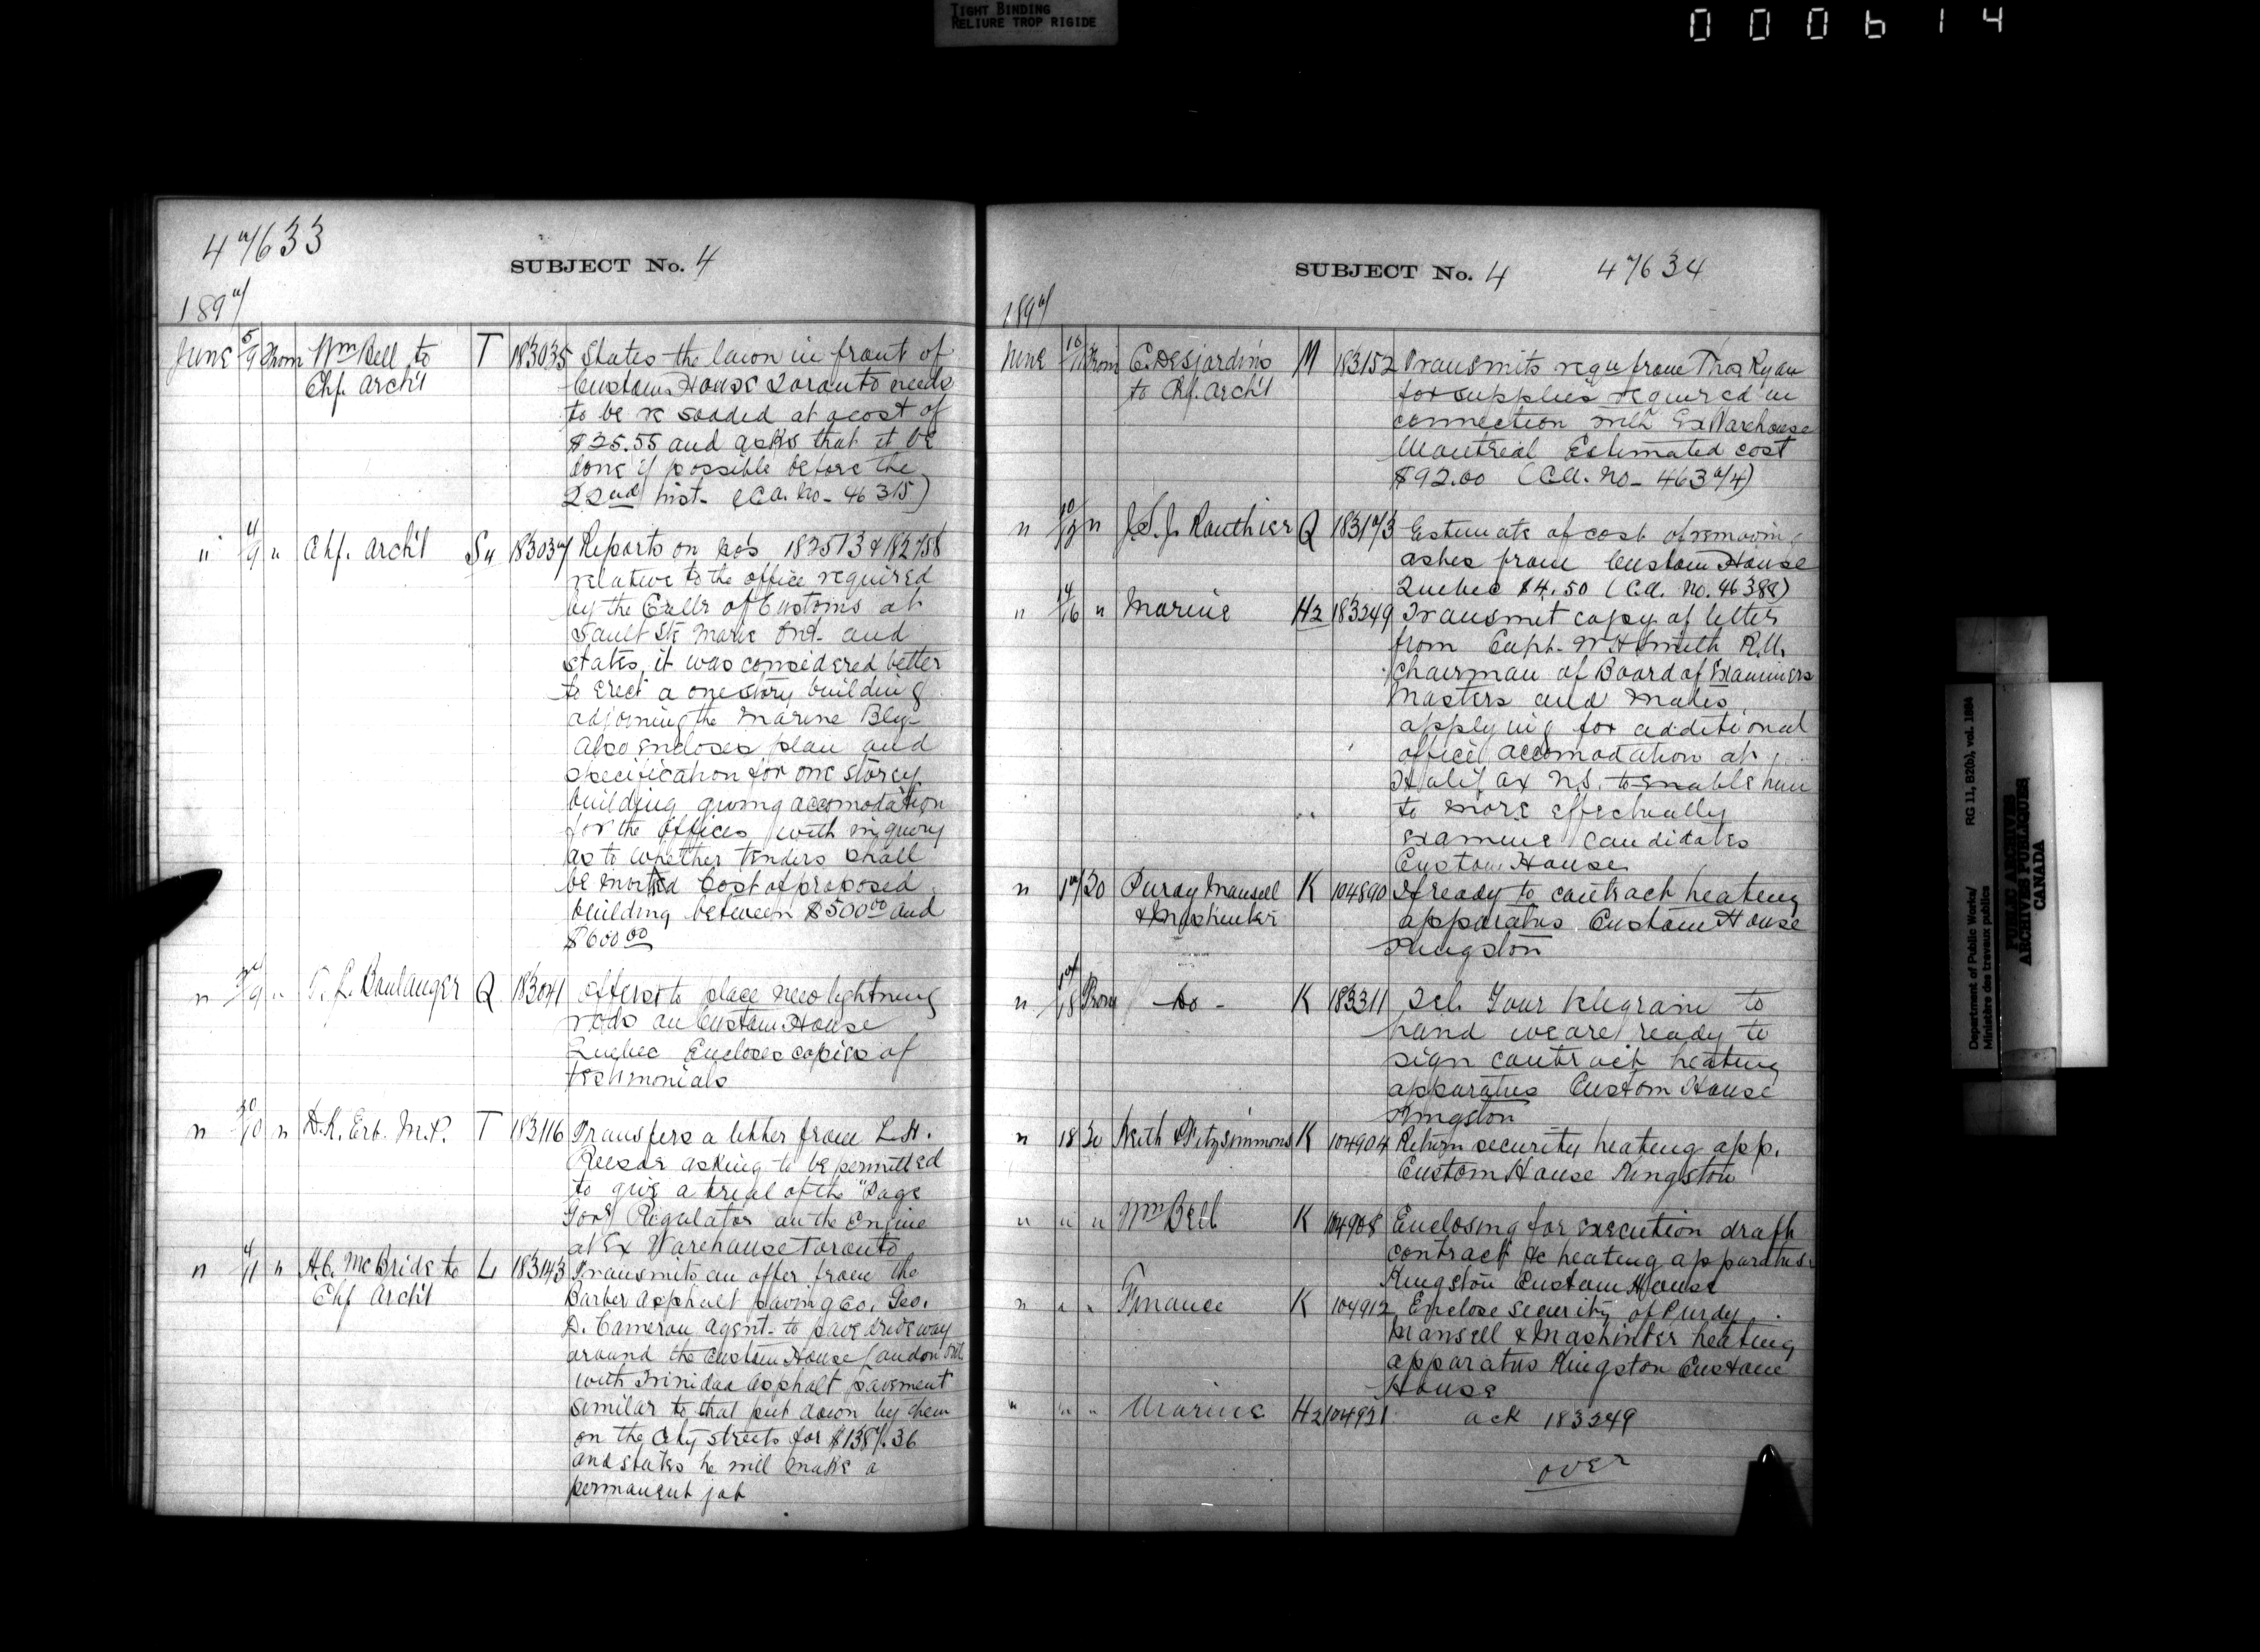 TIGHT BINDING
RELIURE TROP RIGIDE
000614
47633
SUBJECT No. 4
1897
June 5/9 From Wm Bell to T 183035 States the lawn in front of
Chf. Archt Custom House Toronto needs
to be re sodded at a cost of
$25.55 and asks that it be
done if possible before the
22nd inst. (Ca. No. 46315)
" 4/9 " Chf. Archt 183037 Reports on No's 182513 & 182758
relative to the office required
by the Collr of Customs at
Sault Ste Marie Ont. and
states it was considered better
to erect a one story building
adjoining the Marine Bldg
Also encloses plan and
specification for one storey
building giving accomodation
for the offices with inquery
as to whether tenders shall
be invited Cost of proposed
building between $500.00 and
$600.00
" " Boulanger Q 183041 Offers to place new lightning
rods on Custom House
Quebec Encloses copies of
testimonials
" " D.K. Erb. M.P. T 183116 Transfers a letter from L.H.
Reesor asking to be permitted
to give a trial of the "Page
Regulator on the Engine
at Ex Warehouse Toronto
" 4/11 " H.C. McBride to L 183143 Transmits an offer from the
Chf Archt Barber Asphalt paving Co. Geo.
D. Cameron agent. to pave driveway
around the Custom House London Ont.
with Trinidad asphalt pavement
similar to that put down by them
on the City streets for $1387.36
and states he will make a
permanent job
SUBJECT No. 4 47634
1897
June 10/11 From E. Desjardins M 183152 Transmits requ from Thos Ryan
to Chf. Archt for supplies required in
connection with Ex Warehouse
Montreal Estimated cost
$92.00 (Ca. No. 46374)
" " J.S.J. Routhier Q 183173 Estimate of cost of removing
ashes from Custom House
Quebec $4.50 (Ca. No. 46388)
" 14/16 " Marine H2 183249 Transmit copy of letter
from Capt. W H Smith R.N.
Chairman of Board of Examiners
Masters and Mates
applying for additional
office accomodation at
Halifax N.S. to enable him
to more effectually
examine candidates
Custom House
" 17 To Purdy Mansell K 104890 If ready to contract heating
& Mashinter apparatus Custom House
Kingston
" 17/18 From - Do - K 183311 Tel. Your telegram to
hand we are ready to
sign contract heating
apparatus Custom House
Kingston
" 18 To Keith & Fitzsimmons K 104904 Return security heating app.
Custom House Kingston
" " " Wm Bell K 104908 Enclosing for execution draft
contract &c heating apparatus
Kingston Custom House
" " " Finance K 104912 Enclose security of Purdy
Mansell & Mashinter heating
apparatus Kingston Custom
House
" " " Marine H2 104921 ack 183249
over
Department of Public Works/ RG 11, B2(b), vol. 1884
Ministère des travaux publics
PUBLIC ARCHIVES
ARCHIVES PUBLIQUES
CANADA